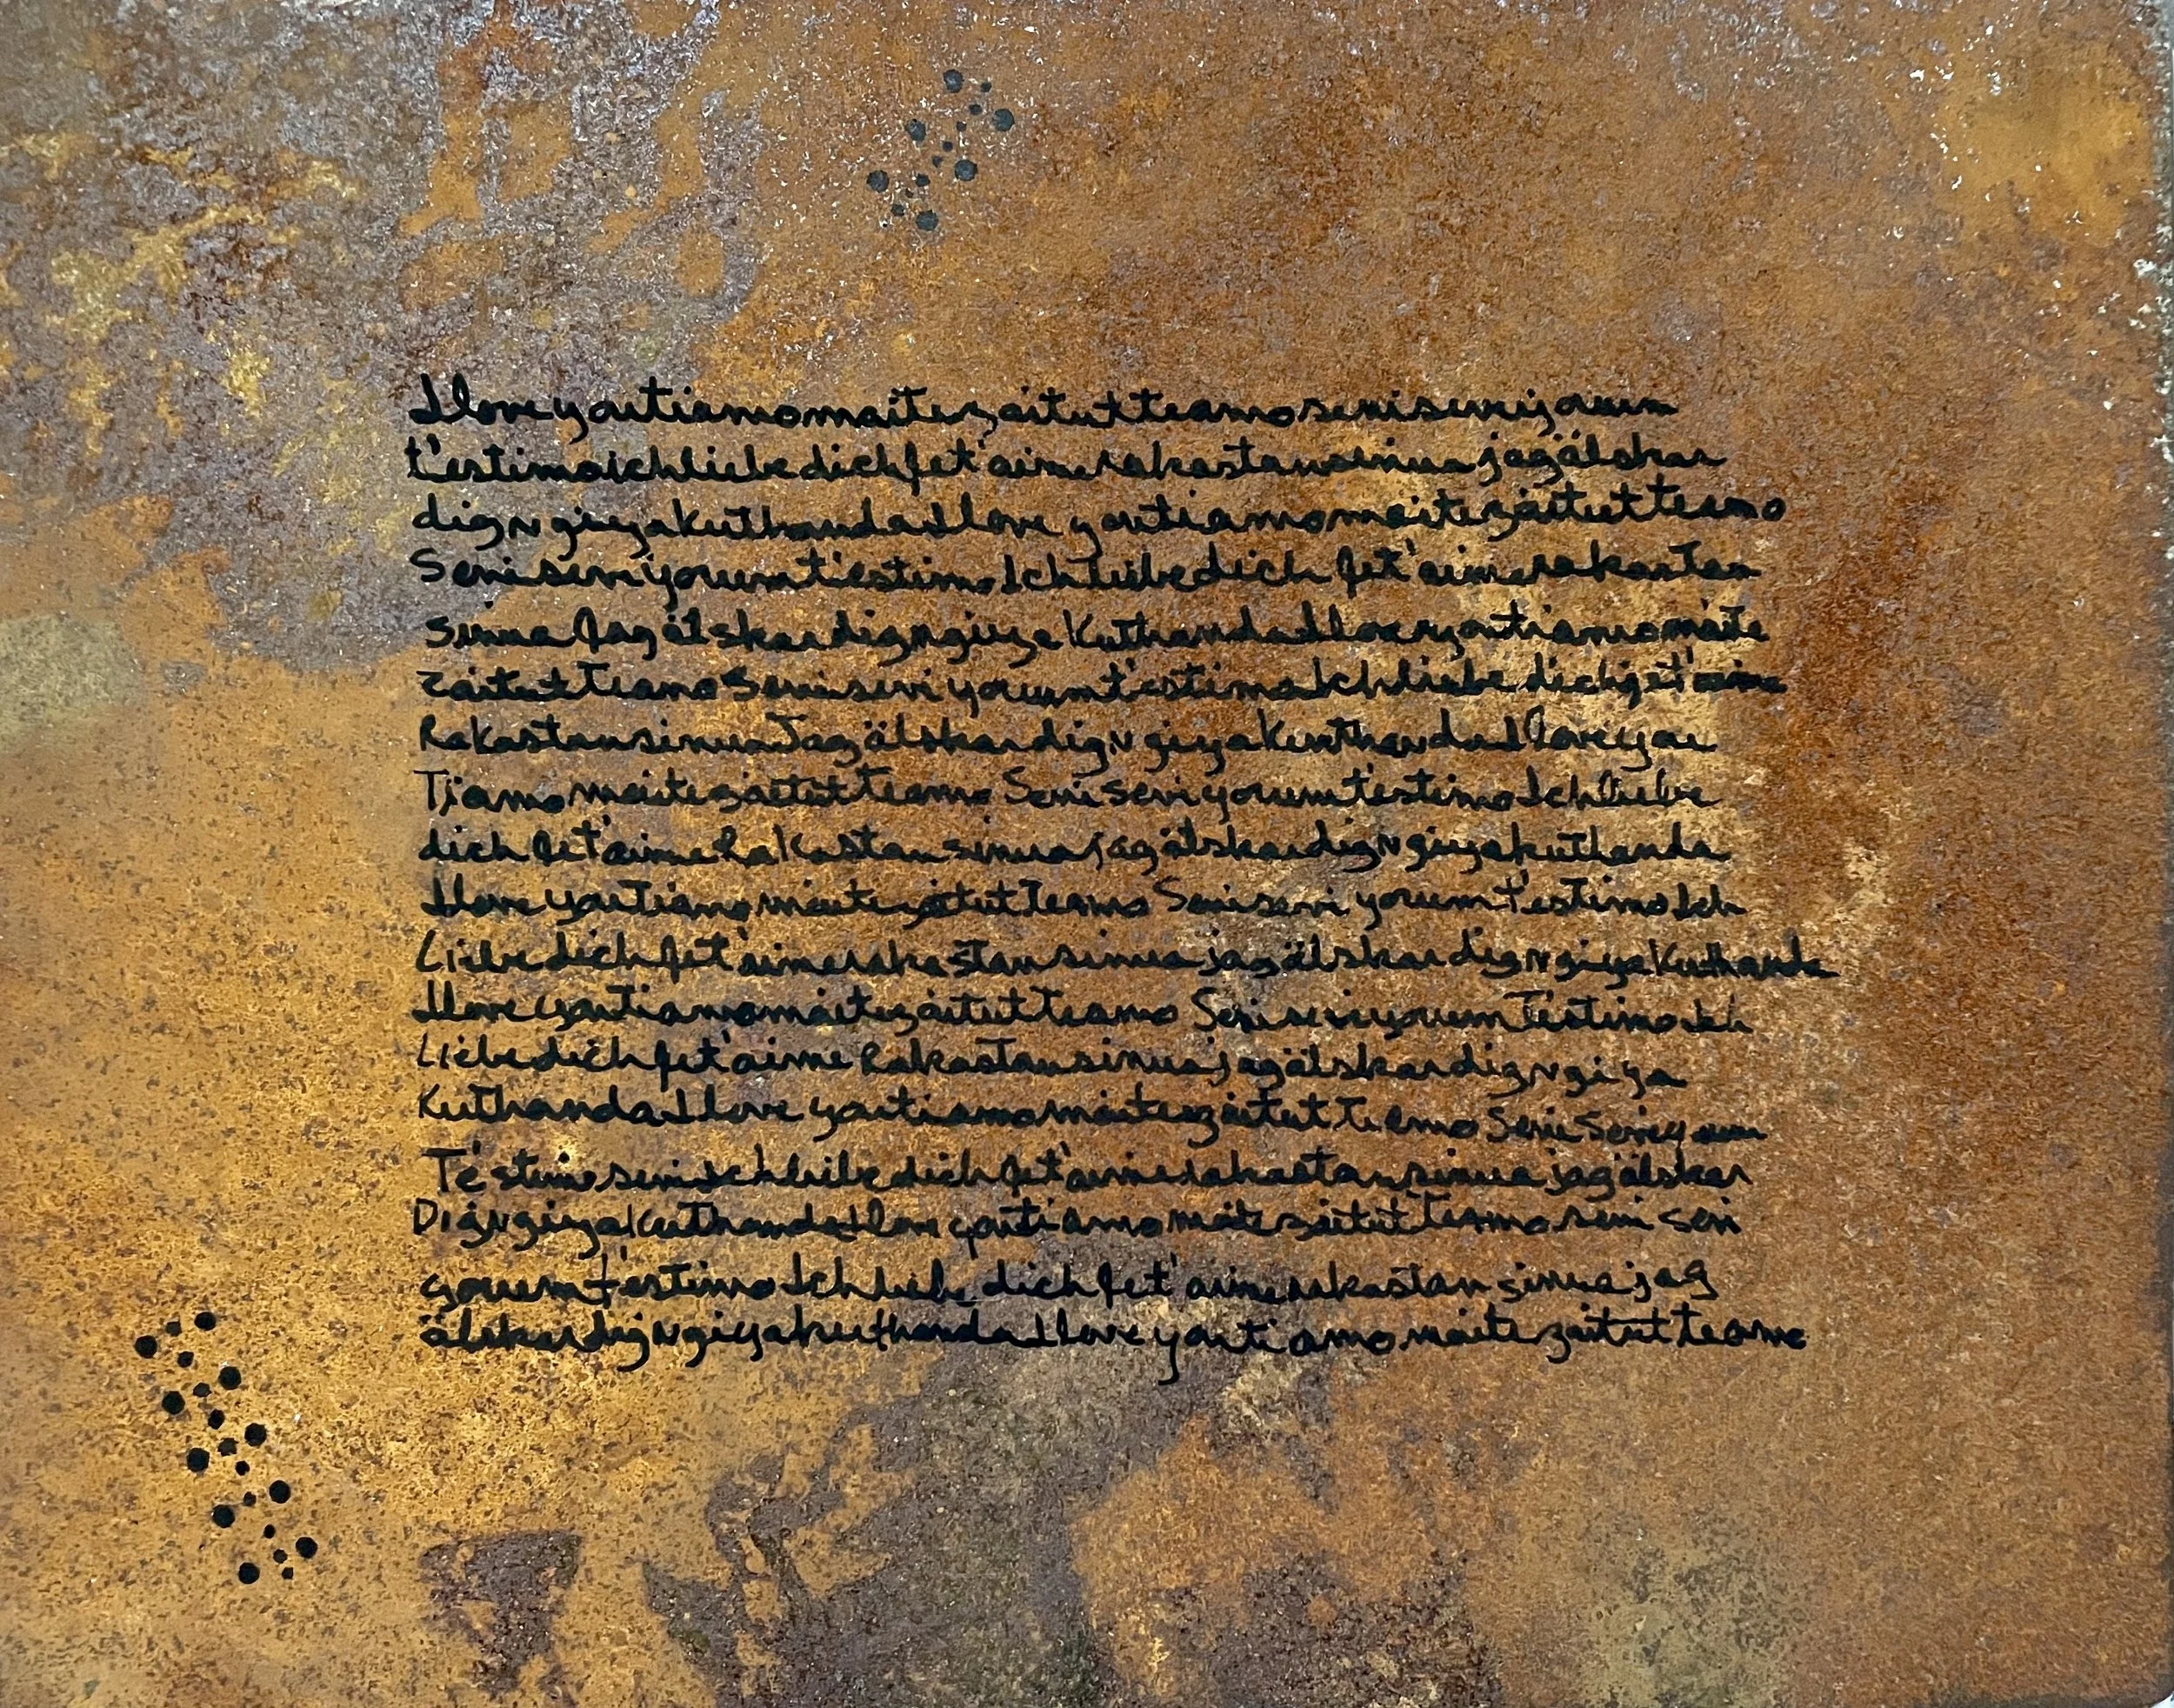 Iloveyoutiamomaitezaitutteamoseniseviyorum
t'estimoichliebedichJet'aimerakastansinuajagälskar
digNgiyakuthandaIlove youtiamomaitezaitutteamo
Seniseviyorumt'estimoIchliebedich Jet'aimerakastan
sinuaJagälskardigngiyaKuthandaIloveyoutiamomaite
zaitutTeamoSeniseviyorumt'estimoIchliebe dichjet'aime
RakastansinuaJagälskardigNgiyaKuthandaIloveyou
Tiamomaitezaitutteamo Seniseviyorumt'estimoIchliebe
dich Jet'aimeRakastansinuajagälskardigNgiyakuthanda
IloveyouTiamomaitezaitutTeamo Seniseviyorumt'estimoIch
LiebedichJet'aimerakastansinuajagälskardigNgiyaKuthanda
Iloveyoutiamomaitezaitutteamo SeniseviyorumTestimoich
LiebedichJet'aimeRakastansinuajagälskardigNgiya
KuthandaIlove youtiamomaitezaitutTeamo Seni Seviyorum
Te'stimoseniIchliebedichJet'aimerakastansinuajagälskar
DigNgiyaKuthandaIlove youtiamomaitezaitutTeamo seni sevi
yorumt'estimoIchliebe dichJet'aimerakastansinuajag
älskardigNgiyakuthandaIloveyoutiamomaitezaitutteamo